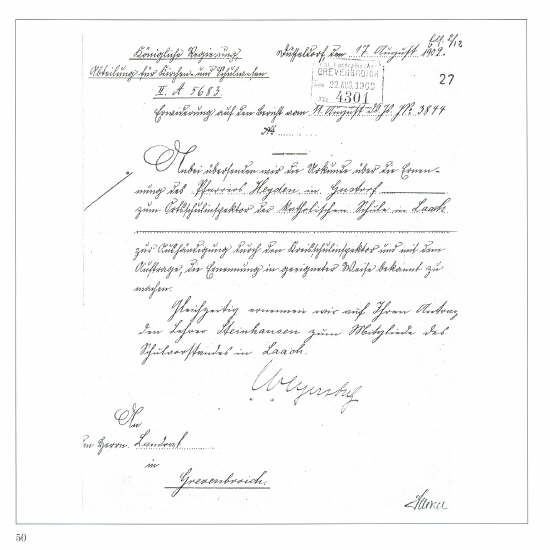 Königliche Regierung,
Abteilung für Kirchen- und Schulwesen
II. A 5683
Düsseldorf, den 17. August 1902.
GREVENBROICH
22. AUG. 1902
4301
27
Erwiderung auf den Bericht vom 11. August d. Js. № 3844
Anbei übersenden wir die Urkunde über die Ernen-
nung des Pfarrers Heyden in Gustorf
zum Ortsschulinspektor der katholischen Schule in Laach
zur Aushändigung durch den Kreisschulinspektor und mit dem
Auftrage, die Ernennung in geeigneter Weise bekannt zu
machen.
Gleichzeitig ernennen wir auf Ihren Antrag
den Lehrer Steinhausen zum Mitgliede des
Schulvorstandes in Laach.
An
den Herrn Landrat
in
Grevenbroich.
50